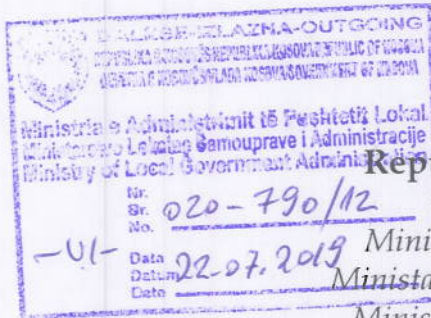 DALESE-IZLAZNA-OUTGOING
Ministria e Administrimit të Pushtetit Lokal
Ministarstvo Lokalne Samouprave i Administracije
Ministry of Local Government Administration
Rep
Nr.
Br.
No. 020-790/12
-U1-
Data
Datum
Date 22.07.2019
Mini
Minista
Minis